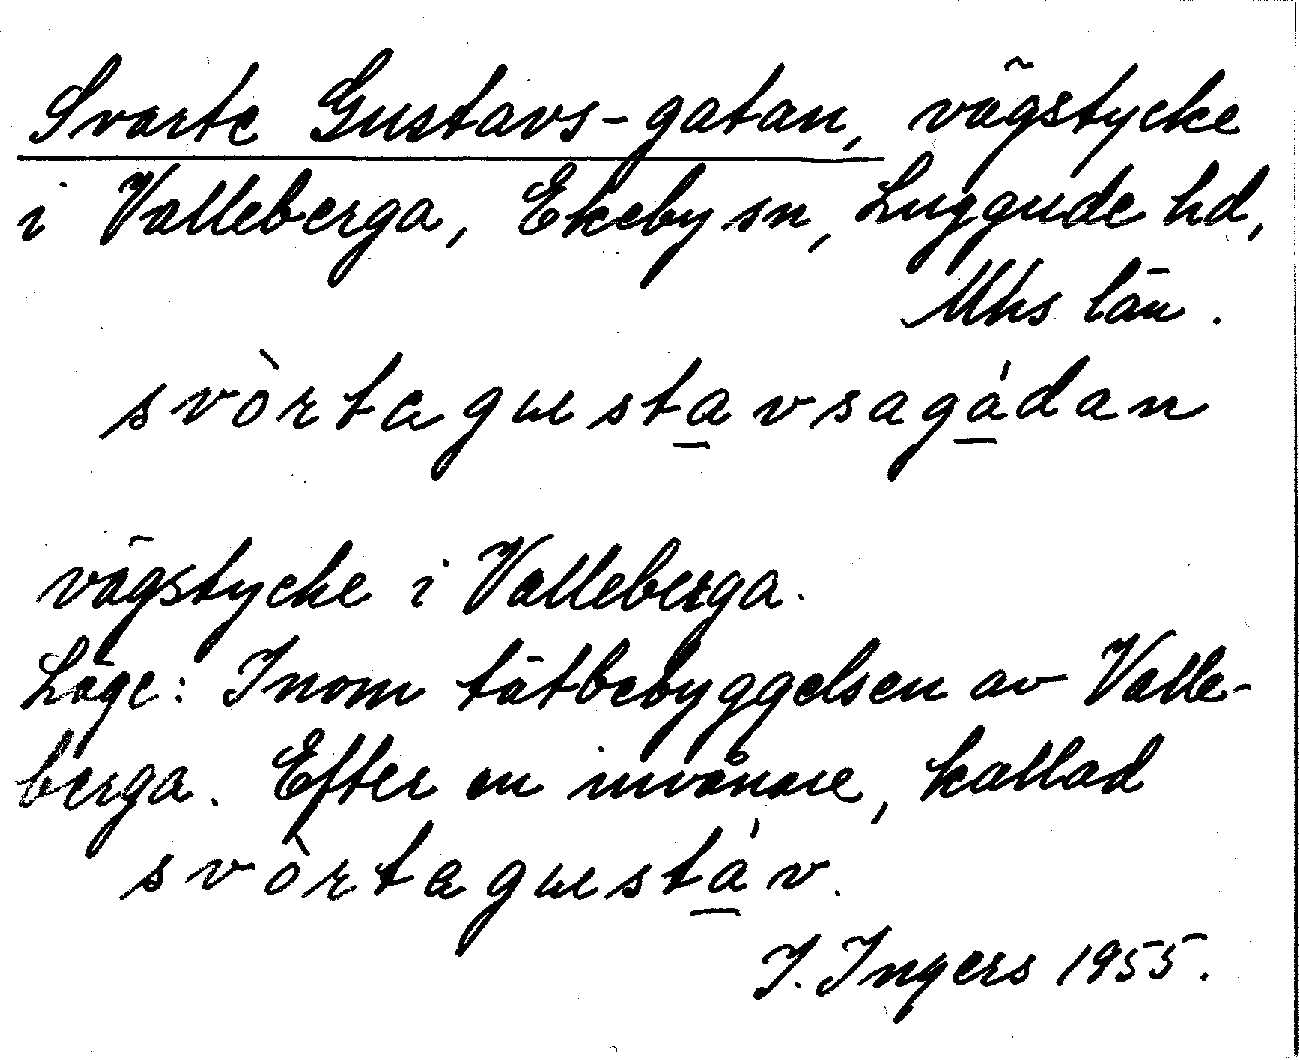 Svarte Gustavs-gatan, vägstycke
i Valleberga, Ekeby sn, Luggude hd,
Mhs län.
svòrtagustavsagádan
vägstycke i Valleberga.
Läge: Inom tätbebyggelsen av Valle-
berga. Efter en invånare, kallad
svòrtagustáv.
I. Ingers 1955.